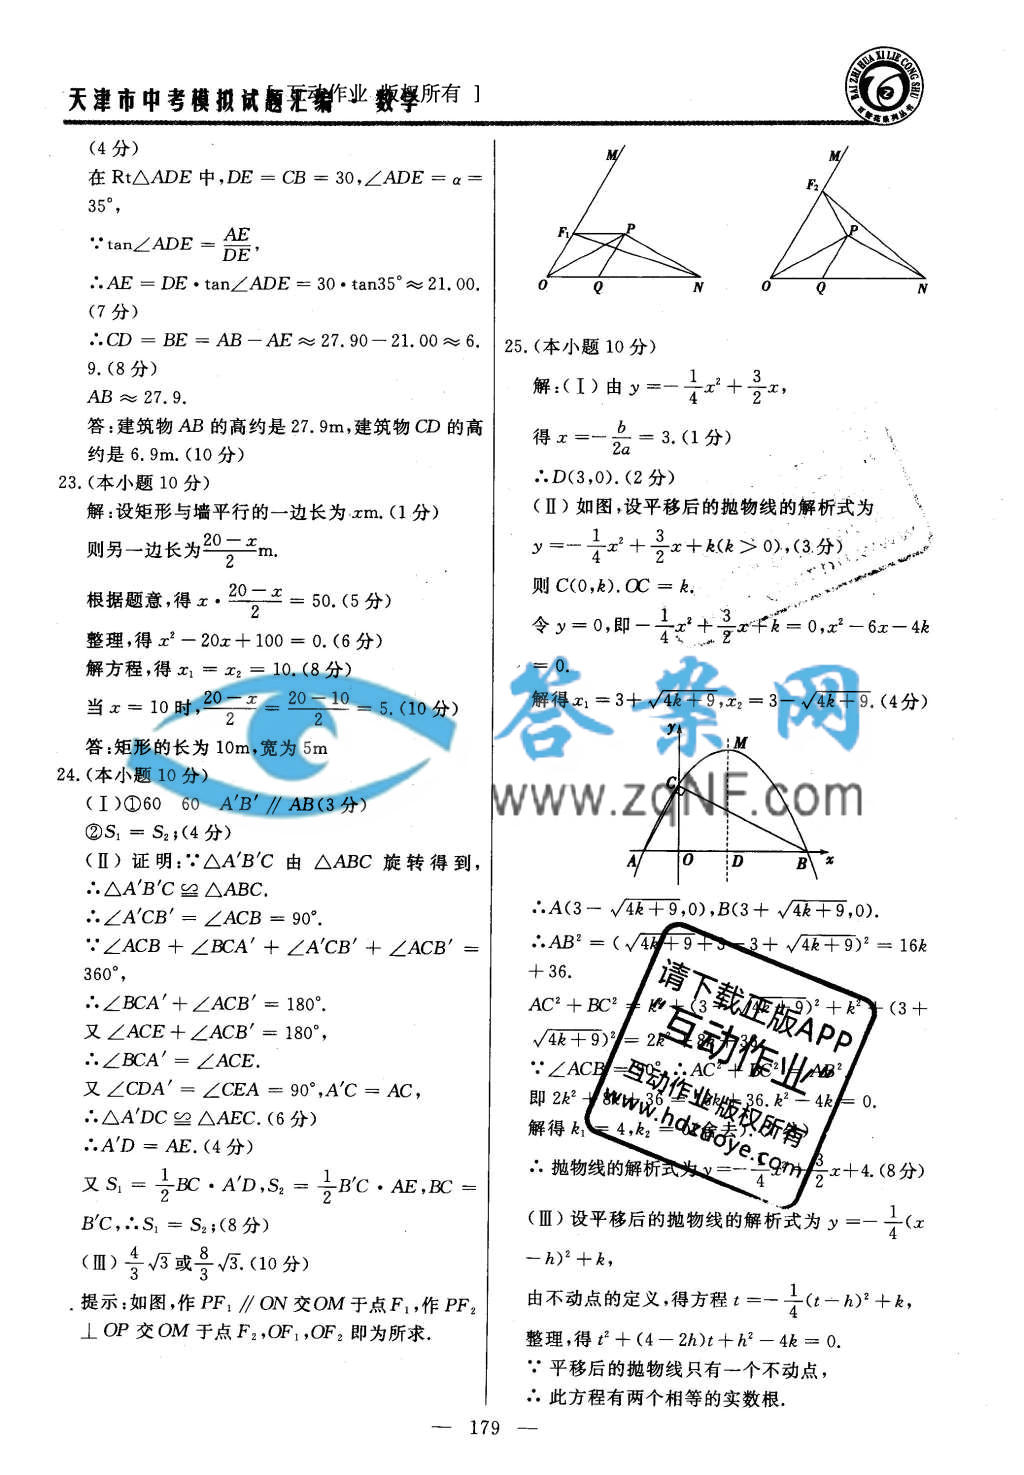 天津市中考模拟试题汇编·数学
[ 互动作业 版权所有 ]
BAI ZHI HUA XI LIE CONG SHU
(4分)
在 Rt△ADE 中,DE = CB = 30,∠ADE = α =
35°,
∵tan∠ADE = AE/DE,
∴AE = DE·tan∠ADE = 30·tan35°≈21.00.
(7分)
∴CD = BE = AB−AE≈27.90−21.00≈6.
9.(8分)
AB≈27.9.
答:建筑物 AB 的高约是 27.9m,建筑物 CD 的高
约是 6.9m.(10分)
23.(本小题10分)
解:设矩形与墙平行的一边长为xm.(1分)
则另一边长为(20−x)/2 m.
根据题意,得 x·(20−x)/2 = 50.(5分)
整理,得 x²−20x+100 = 0.(6分)
解方程,得 x₁ = x₂ = 10.(8分)
当 x = 10时,(20−x)/2 = (20−10)/2 = 5.(10分)
答:矩形的长为 10m,宽为 5m
24.(本小题10分)
(Ⅰ)①60 60 A′B′∥AB(3分)
②S₁ = S₂;(4分)
(Ⅱ)证明:∵△A′B′C 由 △ABC 旋转得到,
∴△A′B′C≌△ABC.
∴∠A′CB′ = ∠ACB = 90°.
∵∠ACB+∠BCA′+∠A′CB′+∠ACB′ =
360°,
∴∠BCA′+∠ACB′ = 180°.
又∠ACE+∠ACB′ = 180°,
∴∠BCA′ = ∠ACE.
又∠CDA′ = ∠CEA = 90°,A′C = AC,
∴△A′DC≌△AEC.(6分)
∴A′D = AE.(4分)
又 S₁ = 1/2 BC·A′D,S₂ = 1/2 B′C·AE,BC =
B′C,∴S₁ = S₂;(8分)
(Ⅲ)4/3 √3或8/3 √3.(10分)
提示:如图,作PF₁∥ON交OM于点F₁,作PF₂
⊥OP 交OM于点F₂,OF₁,OF₂ 即为所求.
M F₁ P O Q N
M F₂ P O Q N
25.(本小题10分)
解:(Ⅰ)由 y =−1/4 x²+3/2 x,
得 x =−b/2a = 3.(1分)
∴D(3,0).(2分)
(Ⅱ)如图,设平移后的抛物线的解析式为
y =−1/4 x²+3/2 x+k(k>0),(3分)
则 C(0,k).OC = k.
令 y = 0,即−1/4 x²+3/2 x+k = 0,x²−6x−4k
= 0.
解得x₁ = 3+√(4k+9),x₂ = 3−√(4k+9).(4分)
y M C A O D B x
∴A(3−√(4k+9),0),B(3+√(4k+9),0).
∴AB² = (√(4k+9)+3−3+√(4k+9))² = 16k
+36.
AC²+BC² = k²+(3−√(4k+9))²+k²+(3+
√(4k+9))² = 2k²+8k+36
∵∠ACB = 90°,∴AC²+BC² = AB²
即 2k²+8k+36 = 16k+36.k²−4k = 0.
解得 k₁ = 4,k₂ = 0(舍去).
∴抛物线的解析式为y =−1/4 x²+3/2 x+4.(8分)
(Ⅲ)设平移后的抛物线的解析式为 y =−1/4(x
−h)²+k,
由不动点的定义,得方程 t =−1/4(t−h)²+k,
整理,得 t²+(4−2h)t+h²−4k = 0.
∵平移后的抛物线只有一个不动点,
∴此方程有两个相等的实数根.
— 179 —
答案网
www.zqNF.com
请下载正版APP
“互动作业”
互动作业版权所有
www.hdzuoye.com